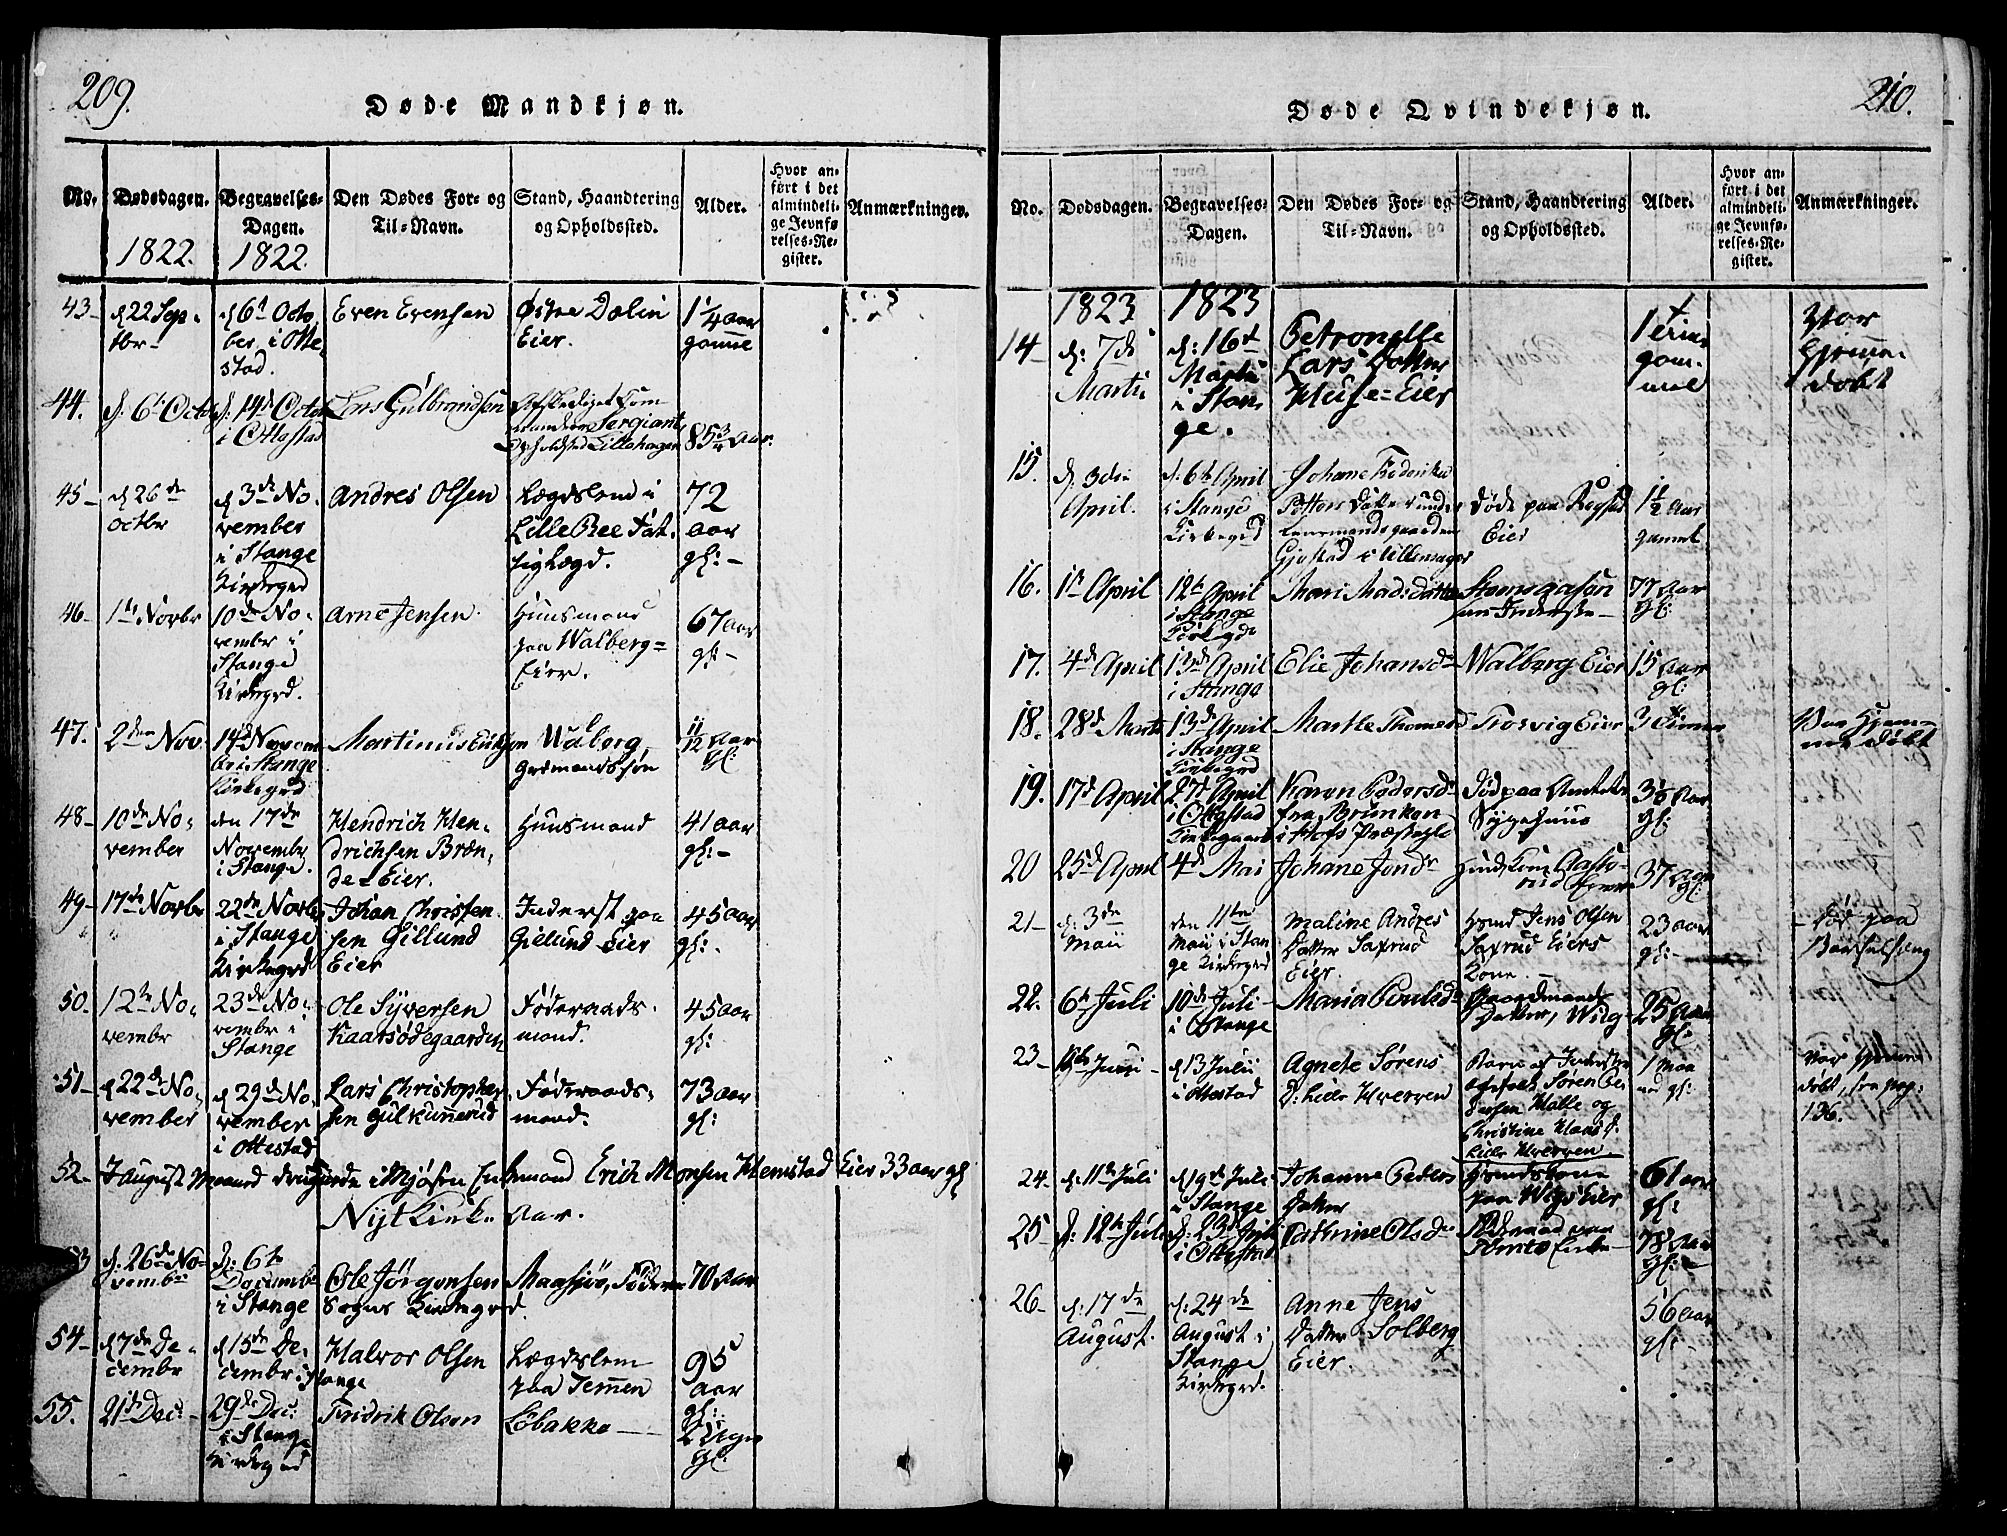 209.
Døde Mandkjøn.
No.
Dødsdagen.
1822.
Begravelses-
Dagen.
1822.
Den Dødes For- og
Til-Navn.
Stand, Haandtering
og Opholdssted.
Alder.
Hvor an-
ført i det
almindeli-
ge Jevnfø-
relses-Re-
gister.
Anmærkninger.
43-
d 22 Sep-
tbr-
d 6t Octo
ber i Otte
stad.
Even Evensen
Østre Dælin
Eier.
1 1/4 aar
gamle
44.
d. 6t Octob
d. 14d Octob
i Ottestad
Lars Gulbrandsen
Sergiant
Lillehagen
85 3/4 Aar.
45-
d 26 de
Octbr
d 3de No
vember
i Stange
Kirkegrd
Andres Olsen
Lægdslem i
Lille Ree Fat-
tiglægd.
72
aar
gl:-
46-
1te Novbr
10de No-
vembr i
Stange
Kirkegrd.
Arne Jensen.
Huusmand
paa Walberg-
Eier.
67 aar
gl-
47.
2den Nov.
14d Novem
ber i Stange
Kirkegrd
Martinus Erichsen
Walberg,
Grdmandssøn
11/12 Aar
gl:
48-
10de No-
vember
den 17de
Novembr
i Stange.
Hendrich Hen-
drichsen Bræn-
de-Eier.
Huusmand
41 aar
gl:-
49-
17de Novbr
22de Novbr
i Stange
Kirkegrd
Johan Christen-
sen Gillund
Eier
Inderst paa
Gielund Eier
45 aar
gl:.
50.
12te No-
vembr
23de No-
vembr i
Stange
Ole Syversen
Kaarsødegaarden
Føderaads-
mand.
45 aar
gl:
51-
d 22de No-
vember
d 29de No-
vember
i Ottestad
Lars Christopher-
sen Gilkunnerud
Føderaads-
mand.
73 aar
gl:
52-
I August Maaned druknede i Mjøsen Enkemand Erich Monsen Hemstad Eier 33 aar gl
Nyt Kirke-Aar.
53
d. 26de No-
vembr
d. 6te
Decembr
i Stange
Ole Jørgensen
Sogns Kirkegrd.
Maasiøe, Føder
70 Aar
54-
d 7de De-
cembr
d 15de De-
cembr i Stange
Halvor Olsen
Lægdslem
paa Temen
95
aar
gl:
55.
21de Dec:
29de Dec:
i Stange
Kirkegrd
Fredrik Olsen
Løbakke
2 Uger
gl.
210.
Døde Qvindekjøn.
No.
Dødsdagen.
Begravelses-
Dagen.
Den Dødes For- og
Til-Navn.
Stand, Haandtering
og Opholdssted.
Alder.
Hvor an-
ført i det
almindeli-
ge Jevnfø-
relses-Re-
gister.
Anmærkninger.
1823
1823
14-
d: 7de
Martii
d: 16t
Martii
i Stan-
ge.
Petronelle
Lars Datter
Huse-Eier
1 time
gam-
mel
Var
hjemme-
døbt
15.
d. 3die
April.
d. 6te April
i Stange
Kirkegrd
Johane Frederika
Gjestad i Ullensager
Døde paa Rogstad
Eier
1 1/2 Aar
gammel
16.
1te April
12te April
i Stange
Kirkegrd
Mari Madsdatter
77 Aar
gl:
17.
4de April
13de April
i Stange
Elie Johansdr
Walberg Eier
15 Aar
gl:
18.
28de Marts
13de April
i Stange
Kirkegrd
Marthe Thomasd
Frosvig Eier
3 Timer
Var Hjem-
me døbt
19.
17d April
27d April
i Ottestad
Kirkegaard
Karen Pedersdr
fra Brunken
i Hofs Præstegld
Død paa Amtets
Sygehuus
Aar
gl:
20
25de April
4de Mai
Johane Jonsdr
37 Aar
gl:
21-
d: 3de
Maii
den 11te
Maii i Stan
ge Kirkegrd
Maline Andres
Datter Saxrud
Eier.
Hmd Jens Olsen
Saxrud Eiers
Kone.-
23 aar
gl:-
- død paa
Barselseng
22.
6te Juli
10de Juli
i Stange
Maria Poulsdr
Gaardmands
Datter, Wiig
25 Aar
gl:
23-
Juli-
d 13 Julii
i Ottestad
Agnete Sørens
D: Lille Hverven
Barn af Inderste
ægtefolk Søren Pe
dersen Halle og
Christine Hans D.
Lille Hverven
1 Maa
ned gl:
Var hjemme
døbt, see pag:
136.
24.
d: 11te Juli
d 19de Juli
i Stange
Johanne Peders
Datter
Huusmandskone
paa Wiigs Eier
61 aar
gl:
25-
d: 12te Juli
d: 23d Juli
i Ottestad
Cathrine Olsdr
78 Aar
gl:-
26-
d: 17de
August.
d: 24de
August i
Stange
Kirkegrd.
Anne Jens
Datter Solberg
Eier.
56 aar
gl: